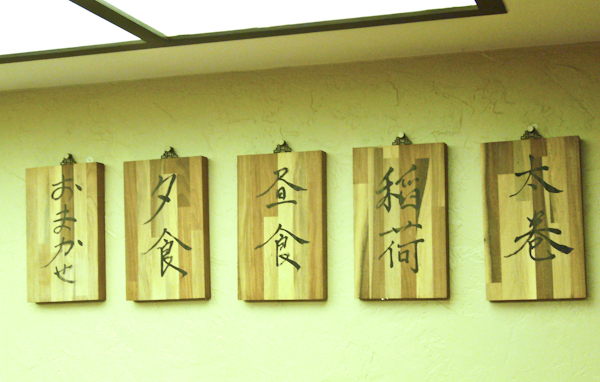 おまかせ
夕食
昼食
稲荷
太巻